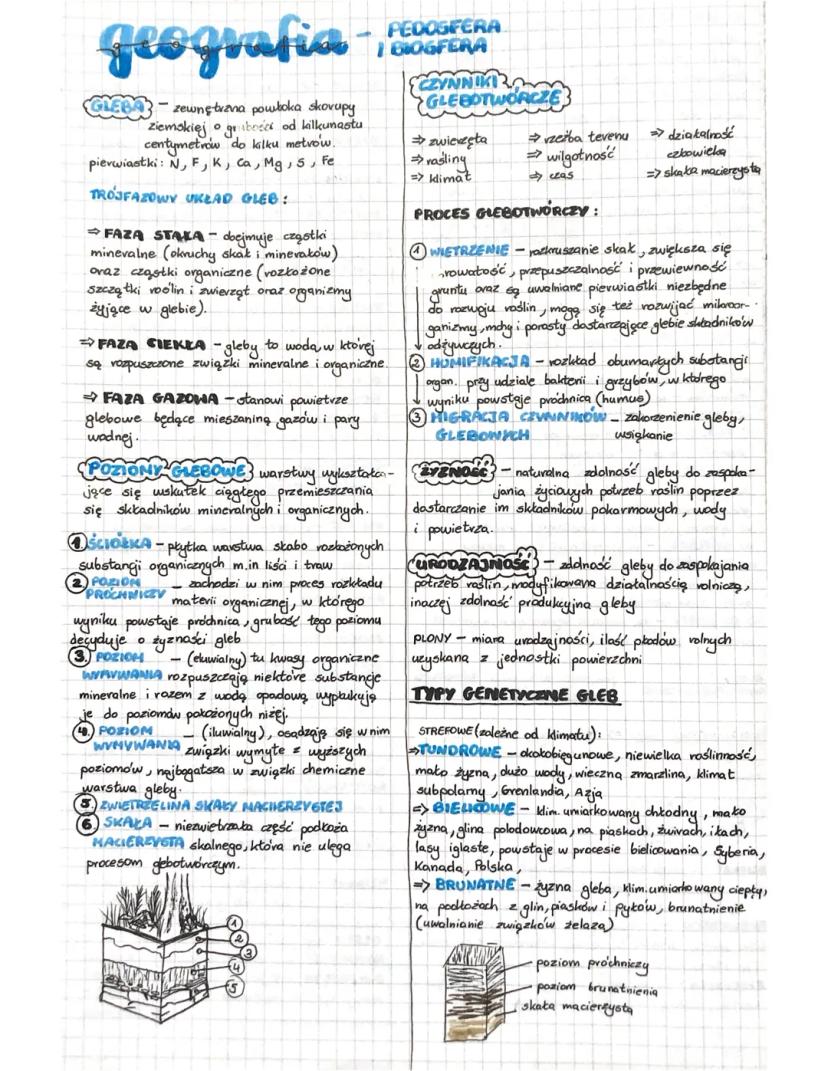 geografia - PEDOSFERA
I BIOSFERA
GLEBA - zewnętrzna powłoka skorupy
ziemskiej o grubości od kilkunastu
centymetrów do kilku metrów.
pierwiastki: N, F, K, Ca, Mg, S, Fe
TRÓJFAZOWY UKŁAD GLEB:
⇒ FAZA STAŁA - obejmuje cząstki
mineralne (okruchy skał i minerałów)
oraz cząstki organiczne (rozłożone
szczątki roślin i zwierząt oraz organizmy
żyjące w glebie).
⇒ FAZA CIEKŁA - gleby to woda, w której
są rozpuszczone związki mineralne i organiczne.
⇒ FAZA GAZOWA - stanowi powietrze
glebowe będące mieszaniną gazów i pary
wodnej.
POZIOMY GLEBOWE warstwy wykształca-
jące się wskutek ciągłego przemieszczania
się składników mineralnych i organicznych.
1. ŚCIÓŁKA - płytka warstwa słabo rozłożonych
substancji organicznych m.in liści i traw
2. POZIOM PRÓCHNICZY - zachodzi w nim proces rozkładu
materii organicznej, w którego
wyniku powstaje próchnica, grubość tego poziomu
decyduje o żyzności gleb
3. POZIOM - (eluwialny) tu kwasy organiczne
WYMYWANIA rozpuszczają niektóre substancje
mineralne i razem z wodą opadową wypłukują
je do poziomów położonych niżej.
4. POZIOM - (iluwialny), osadzają się w nim
WYMYWANIA związki wymyte z wyższych
poziomów, najbogatsza w związki chemiczne
warstwa gleby.
5. ZWIETRZELINA SKAŁY MACIERZYSTEJ
6. SKAŁA - niezwietrzała część podłoża
MACIERZYSTA skalnego, która nie ulega
procesom glebotwórczym.
1
2
3
4
5
CZYNNIKI
GLEBOTWÓRCZE
⇒ zwierzęta ⇒ rzeźba terenu ⇒ działalność
człowieka
⇒ rośliny ⇒ wilgotność
⇒ klimat ⇒ czas ⇒ skała macierzysta
PROCES GLEBOTWÓRCZY:
1 WIETRZENIE - rozkruszanie skał, zwiększa się
porowatość, przepuszczalność i przewiewność
gruntu oraz są uwalniane pierwiastki niezbędne
do rozwoju roślin, mogą się też rozwijać mikroor-
ganizmy, mchy i porosty dostarczające glebie składników
odżywczych.
2 HUMIFIKACJA - rozkład obumarłych substancji
organ. przy udziale bakterii i grzybów, w którego
wyniku powstaje próchnica (humus)
3 MIGRACJA CZYNNIKÓW - zakorzenienie gleby,
GLEBOWYCH wsiąkanie
ŻYZNOŚĆ - naturalna zdolność gleby do zaspoka-
jania życiowych potrzeb roślin poprzez
dostarczanie im składników pokarmowych, wody
i powietrza.
URODZAJNOŚĆ - zdolność gleby do zaspokajania
potrzeb roślin, modyfikowana działalnością rolniczą,
inaczej zdolność produkcyjna gleby
PLONY - miara urodzajności, ilość płodów rolnych
uzyskana z jednostki powierzchni
TYPY GENETYCZNE GLEB
STREFOWE (zależne od klimatu):
⇒ TUNDROWE - okołobiegunowe, niewielka roślinność,
mało żyzna, dużo wody, wieczna zmarzlina, klimat
subpolarny, Grenlandia, Azja
⇒ BIELICOWE - klim. umiarkowany chłodny, mało
żyzna, glina polodowcowa, na piaskach, żwirach, iłach,
lasy iglaste, powstaje w procesie bielicowania, Syberia,
Kanada, Polska,
⇒ BRUNATNE - żyzna gleba, klim. umiarkowany ciepły,
na podłożach z glin, piasków i pyłów, brunatnienie
(uwalnianie związków żelaza)
poziom próchniczy
poziom brunatnienia
skała macierzysta